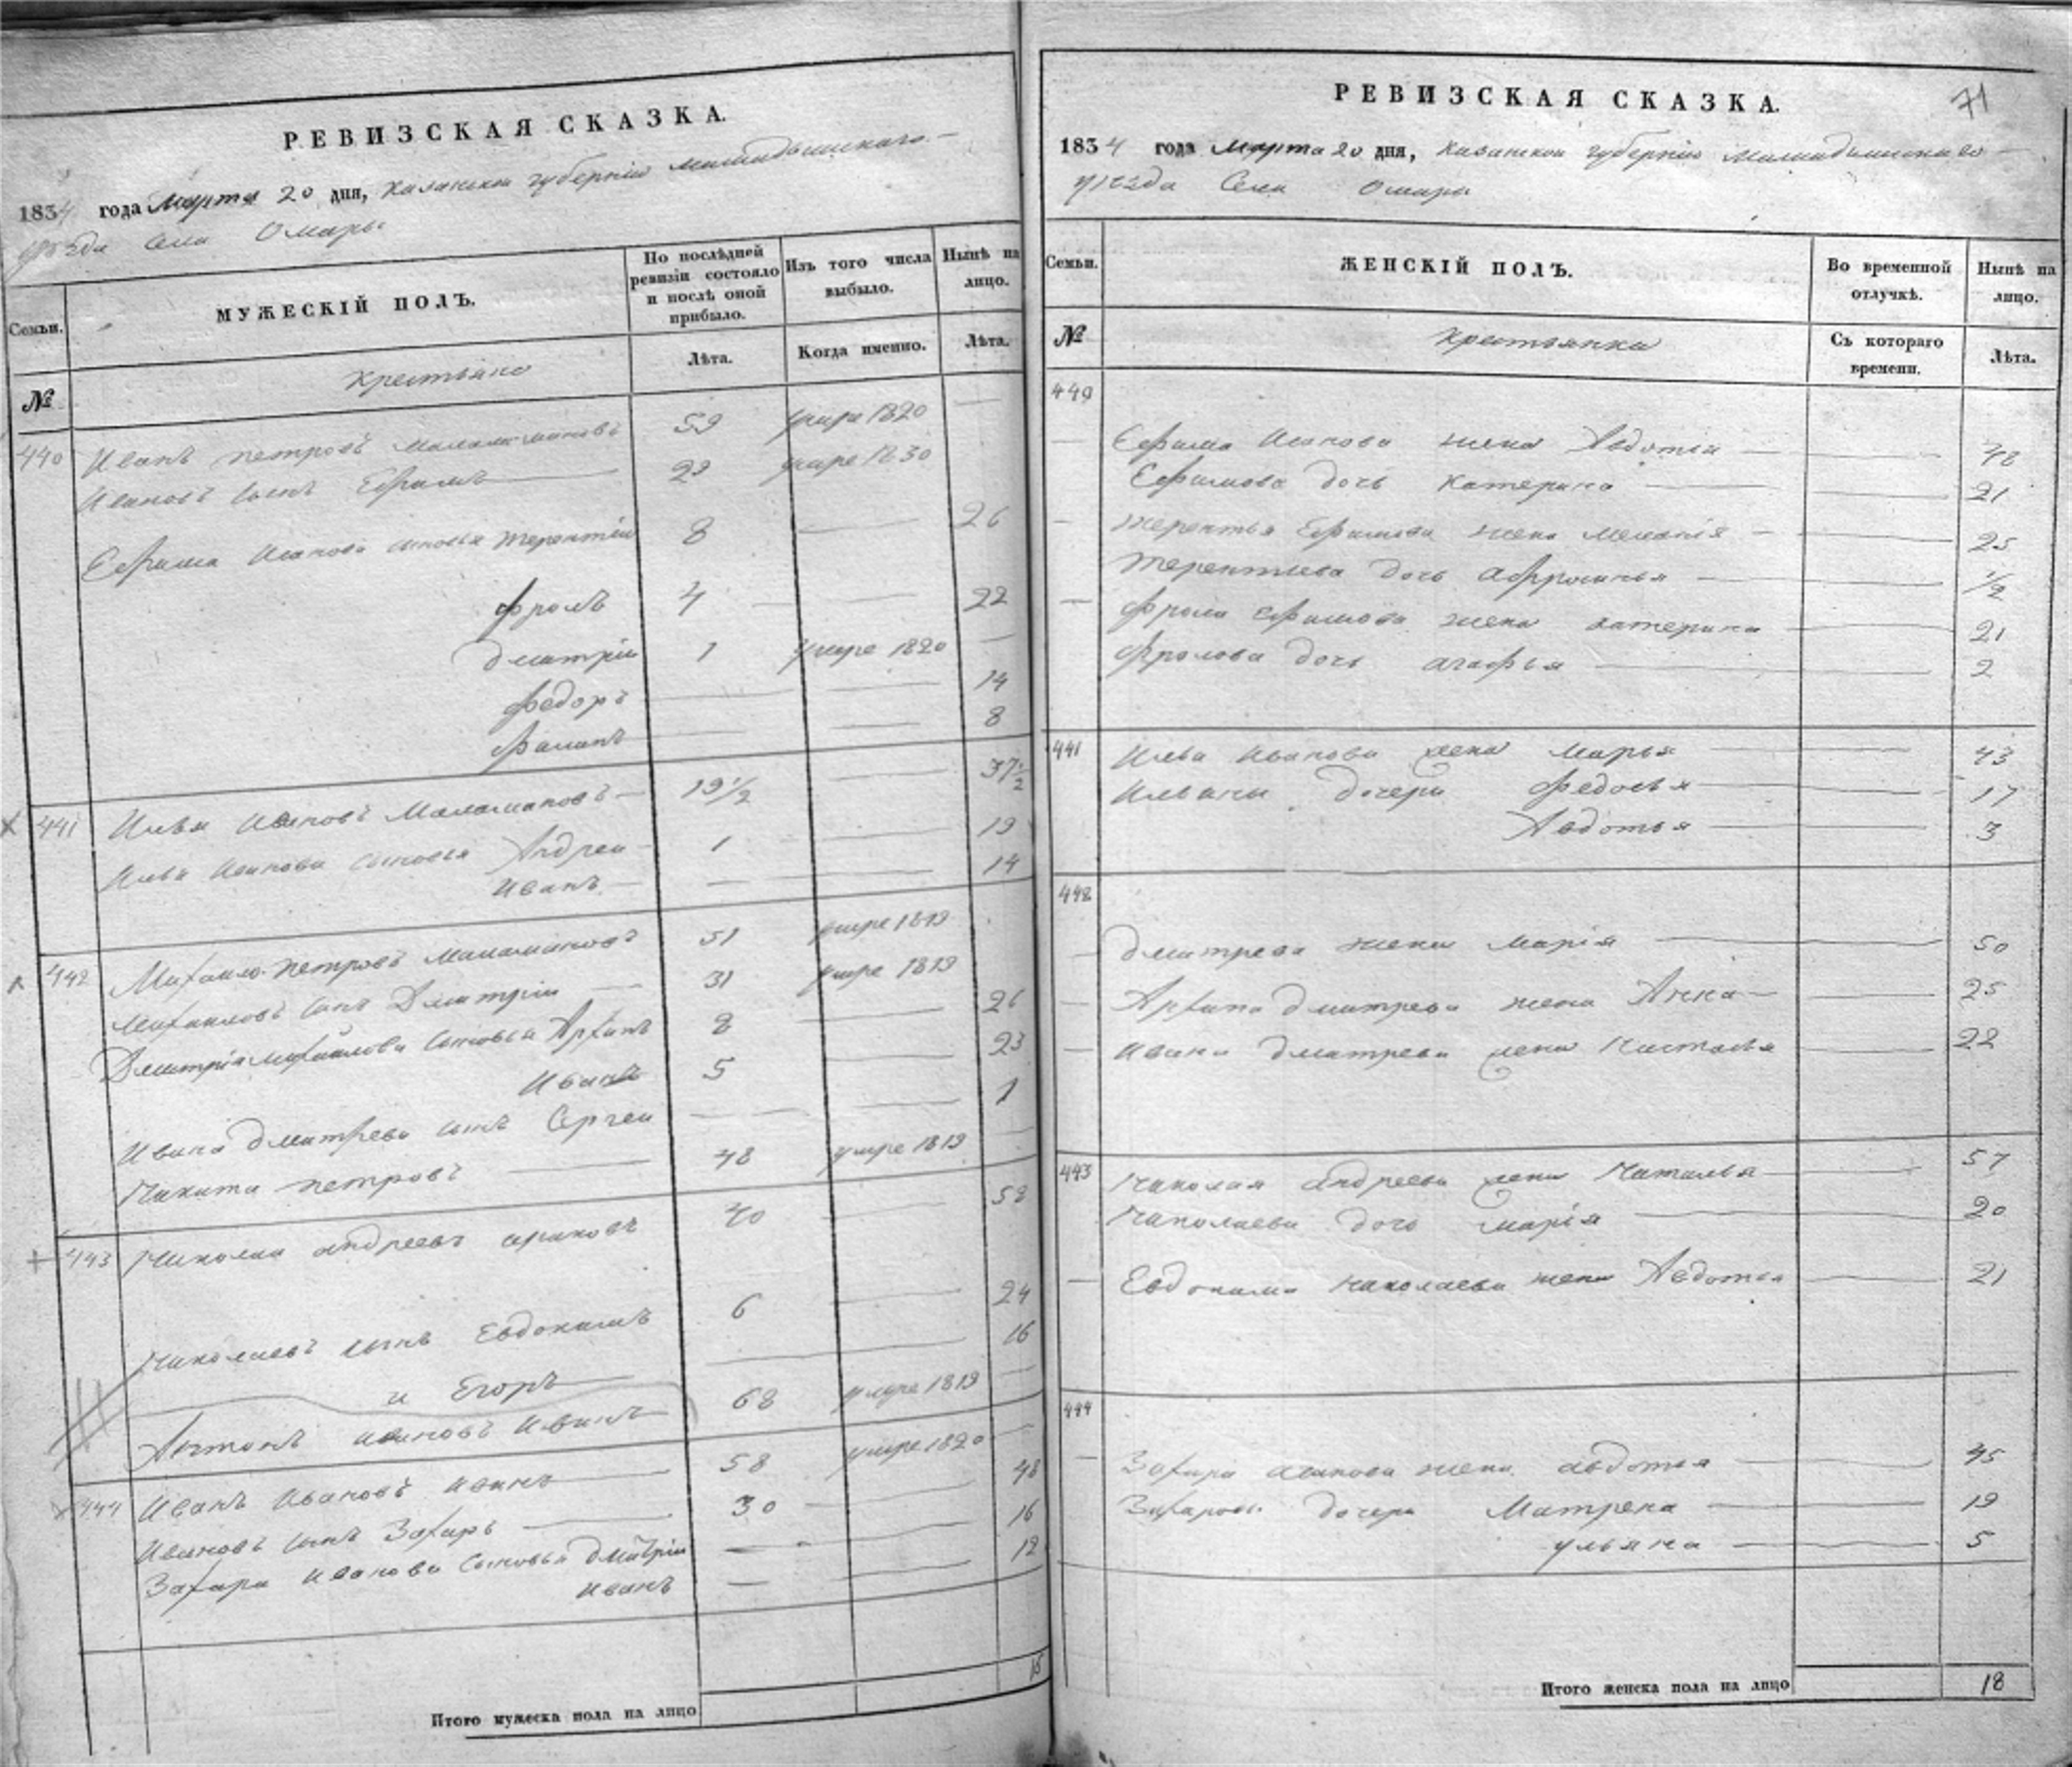 РЕВИЗСКАЯ СКАЗКА.
1834 года Марта 20 дня, Казанской губернии Мамадышскаго
уезда Села Омары
Семьи.
МУЖЕСКІЙ ПОЛЪ.
По послѣдней ревизіи состояло и послѣ оной прибыло.
Изъ того числа выбыло.
Нынѣ на лицо.
№
Крестьяне
Лѣта.
Когда именно.
Лѣта.
440 Иванъ Петровъ 59 умре 1820 —
Ивановъ сынъ Ефимъ 29 умре 1830
Ефима Иванова сыновья Терентiй 8 — 26
Фролъ 4 — 22
Дмитрiй 1 умре 1820 —
Федоръ — — 14
Филипъ — — 8
441 Илья Ивановъ 19½ — 37½
Ильи Иванова сыновья Андрей 1 — 19
Иванъ — — 14
442 Михайло Петровъ 51 умре 1819
Михайловъ сынъ Дмитрiй 31 умре 1819
Дмитрiя Михайлова сыновья Архипъ 8 — 26
Иванъ 5 — 23
Ивана Дмитрева сынъ Сергей — — 1
Никита Петровъ 48 умре 1819 —
443 Николай Андреевъ 40 — 58
Николаевъ сынъ Евдокимъ 6 — 24
и Егоръ — 16
Антонъ Ивановъ 68 умре 1819 —
444 Иванъ Ивановъ 58 умре 1820 —
Ивановъ сынъ Захаръ 30 — 48
Захара Иванова сыновья Дмитрiй — — 16
Иванъ — — 12
Итого мужеска пола на лицо 15
71
РЕВИЗСКАЯ СКАЗКА.
1834 года Марта 20 дня, Казанской губернии Мамадышскаго
уезда Села Омары
Семьи.
ЖЕНСКІЙ ПОЛЪ.
Во временной отлучкѣ.
Нынѣ на лицо.
№
Крестьянки
Съ котораго времени.
Лѣта.
440
Ефима Иванова жена Авдотiя — 48
Ефимова дочь Катерина — 21
Терентья Ефимова жена — 25
Терентиева дочь Афросинья — ½
Фрола Ефимова жена Катерина — 21
Фролова дочь Агафья — 2
441 Ильи Иванова жена Марья — 43
Ильины дочери Федосья — 17
Авдотья — 3
442
Дмитрева жена Марiя — 50
Архипа Дмитрева жена Анна — 25
Ивана Дмитрева жена Настасья — 22
443 Николая Андреева жена Наталья — 57
Николаева дочь Марiя — 20
Евдокима Николаева жена Авдотья — 21
444
Захара Иванова жена Авдотья — 45
Захаровы дочери Матрена — 19
Ульяна — 5
Итого женска пола на лицо 18